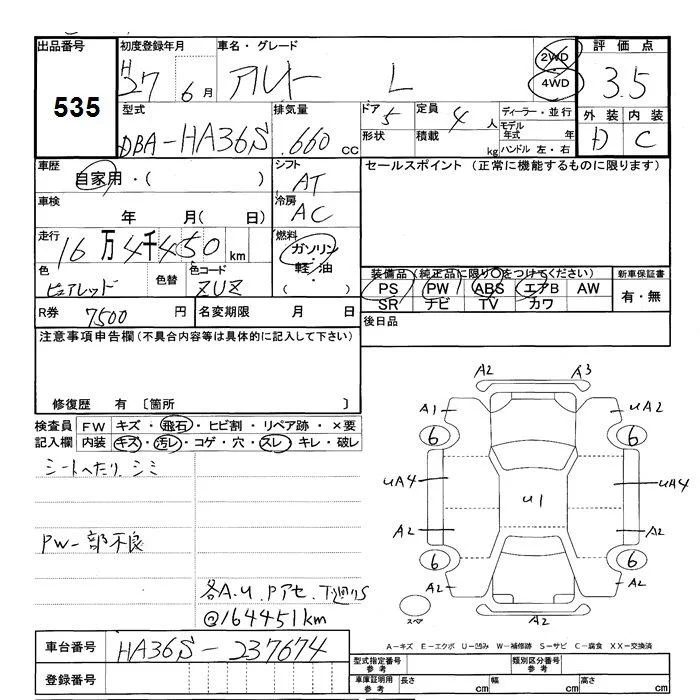 出品番号 初度登録年月 車名・グレード 2WD 評価点
535 H27 6月 アルトー L 4WD 3.5
型式 排気量 ドア 5 定員 4人 ディーラー・並行 外装 内装
DBA-HA36S .660cc 形状 積載 kg モデル年式 年 D C
ハンドル 左・右
車歴 シフト セールスポイント(正常に機能するものに限ります)
自家用・( ) AT
車検 冷房
年 月(日) AC
走行 燃料
16万4千450km ガソリン・
色 色替 色コード 軽油・ 装備品(純正品に限り○をつけてください) 新車保証書
ピュアレッド ZUZ ( ) PS PW ABS エアB AW 有・無
R券 7500円 名変期限 月 日 SR ナビ TV カワ
後日品
注意事項申告欄(不具合内容等は具体的に記入して下さい)
修復歴 有〔箇所 〕
検査員 FW キズ・飛石・ヒビ割・リペア跡・×要
記入欄 内装 キズ・汚レ・コゲ・穴・スレ・キレ・破レ
シートへたり、シミ
PW一部不良
各A.U.Pアセ.下廻りS
@164451km
A2 A3
A1 UA2
6 6
UA4 U1 UA4
A2 A2
6 6
A2 A2
スペア A2
A-キズ E-エクボ U-凹み W-補修跡 S-サビ C-腐食 XX-交換済
車台番号 HA36S-237674
登録番号
型式指定番号 参考 類別区分番号 参考
車庫証明用 参考 長さ cm 幅 cm 高さ cm